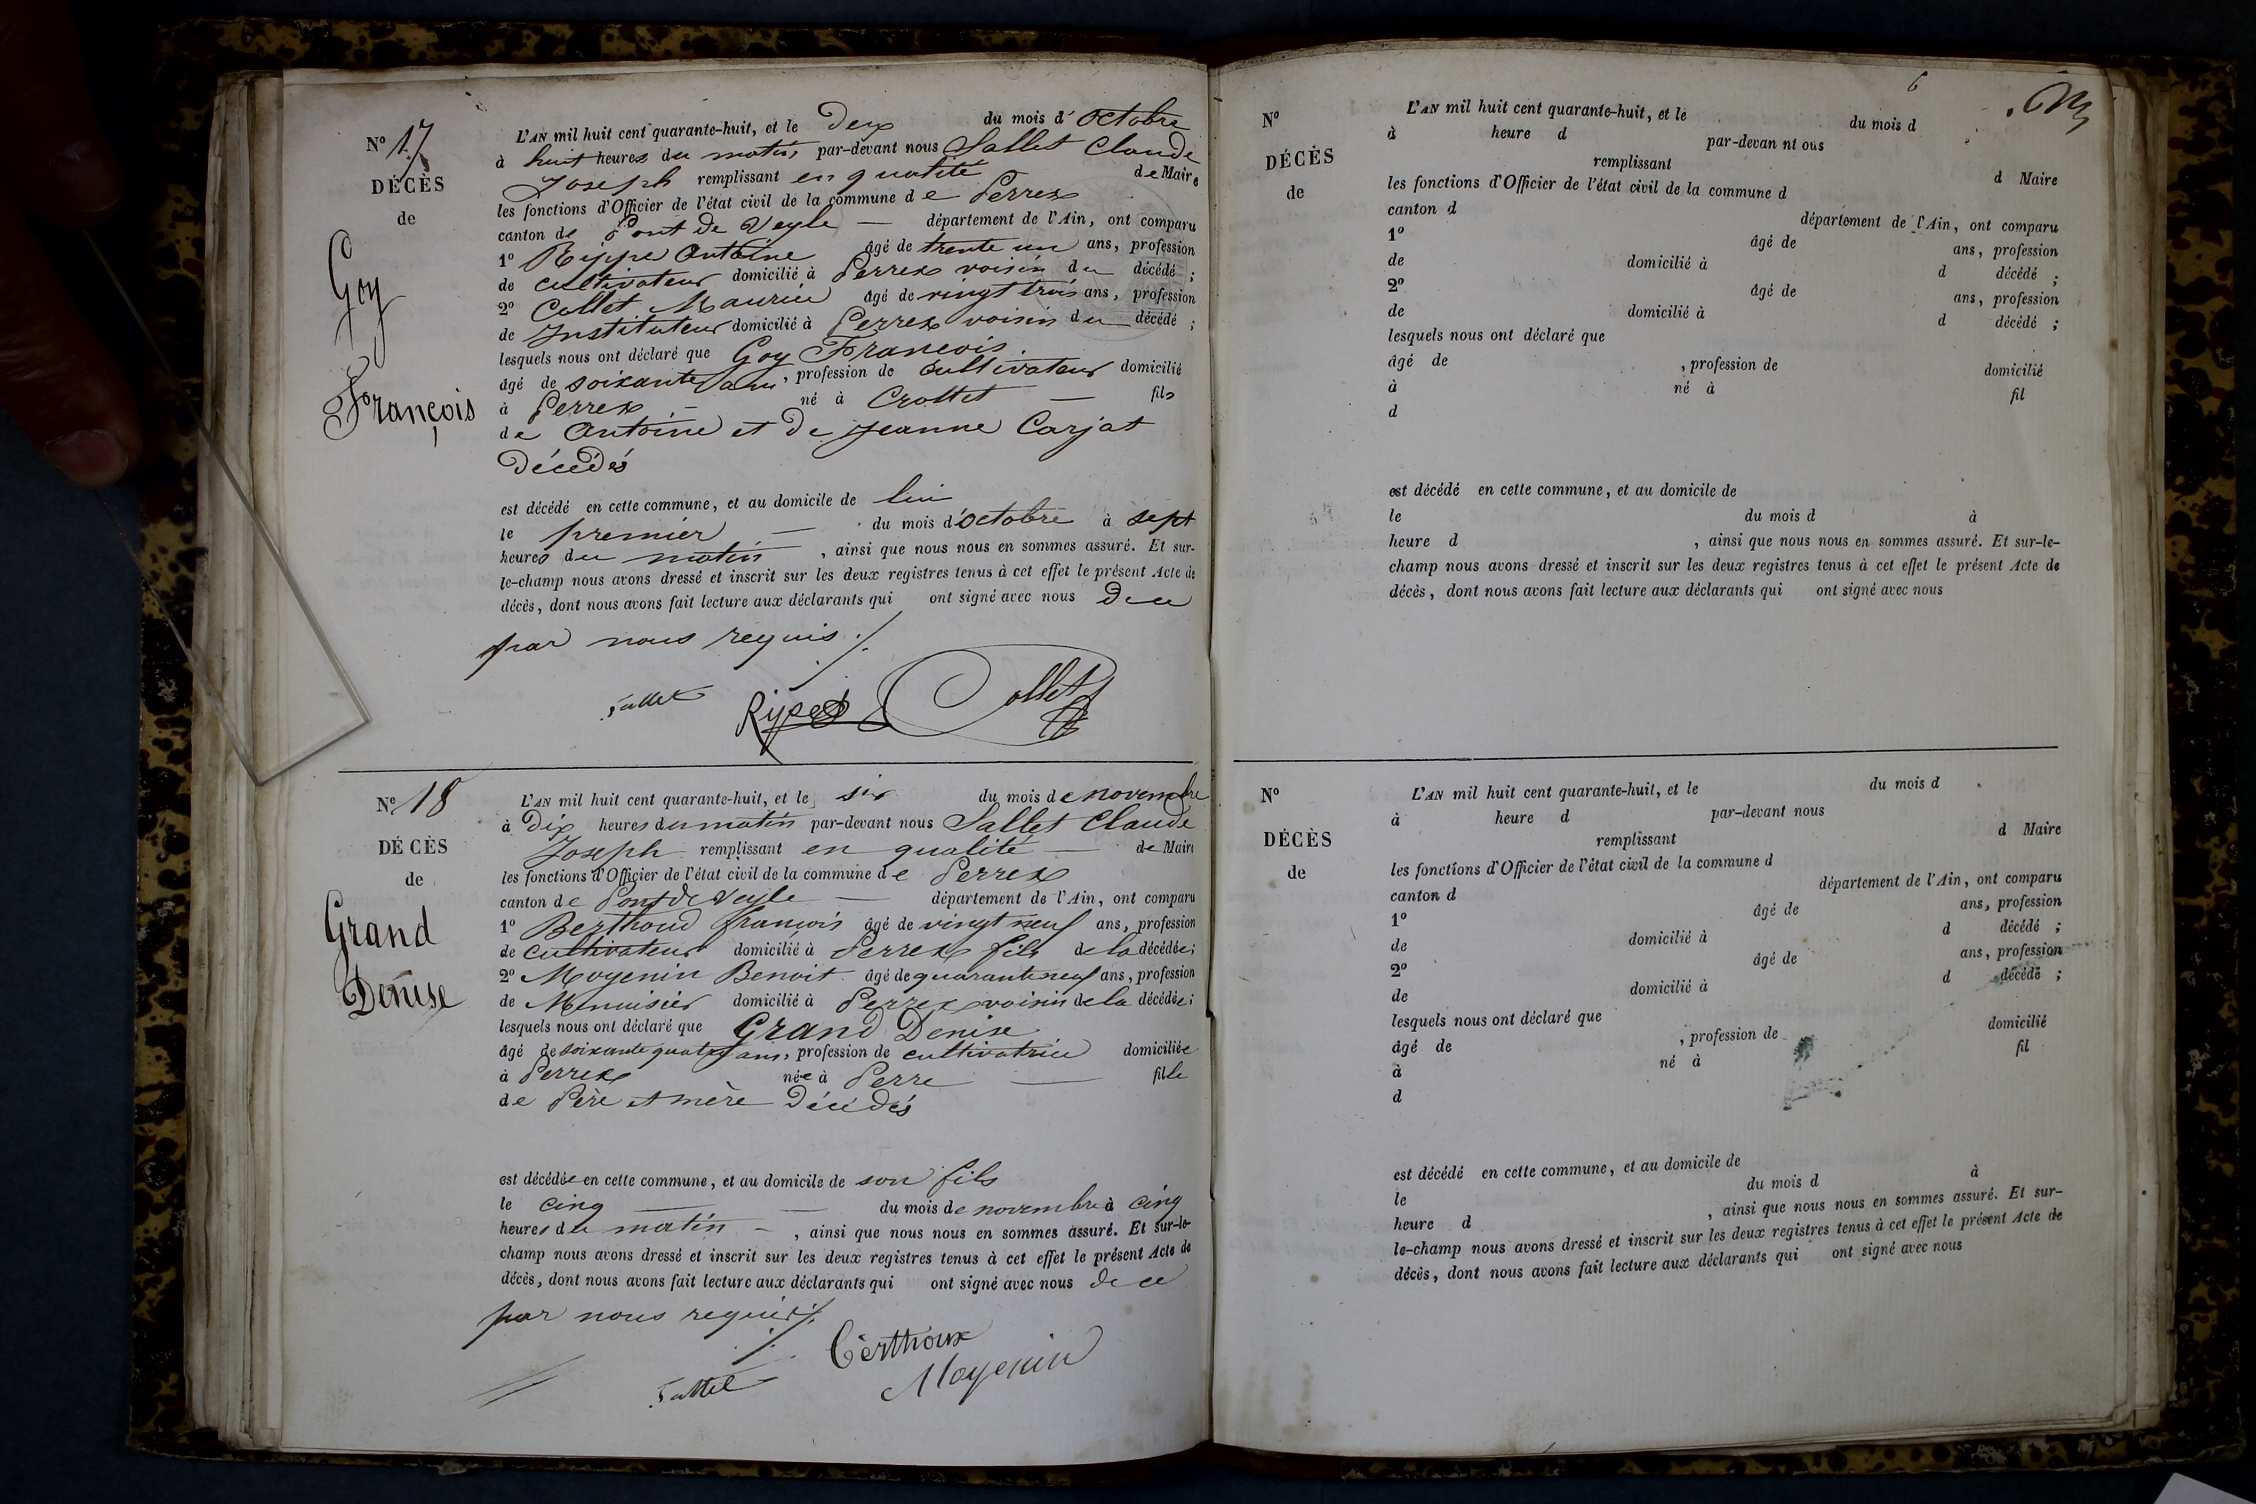 N° 17
DÉCÈS
de
Goy
François
L'AN mil huit cent quarante-huit, et le Deux du mois d'Octobre
à huit heures du matin par-devant nous Sallet Claude
Joseph remplissant en qualité de Maire
les fonctions d'Officier de l'état civil de la commune de Perrex
canton de Pont de Veyle — département de l'Ain, ont comparu
1° Rippe Antoine âgé de trente un ans, profession
de cultivateur domicilié à Perrex voisin du décédé ;
2° Collet Maurice âgé de vingt trois ans, profession
de Instituteur domicilié à Perrex voisin du décédé ;
lesquels nous ont déclaré que Goy François
âgé de soixante ans, profession de cultivateur domicilié
à Perrex — né à Crottet — fils
de Antoine et de Jeanne Carjat
Décédés
est décédé en cette commune, et au domicile de lui
le premier — du mois d'octobre à sept
heures du matin, ainsi que nous nous en sommes assuré. Et sur-
le-champ nous avons dressé et inscrit sur les deux registres tenus à cet effet le présent Acte de
décès, dont nous avons fait lecture aux déclarants qui ont signé avec nous De ce
par nous requis ./.
Sallet Ripe Collet
N° 18
DÉCÈS
de
Grand
Denise
L'AN mil huit cent quarante-huit, et le six du mois de novembre
à Dix heures du matin par-devant nous Sallet Claude
Joseph remplissant en qualité — de Maire
les fonctions d'Officier de l'état civil de la commune de Perrex
canton de Pont de Veyle — département de l'Ain, ont comparu
1° Berthoud françois âgé de vingt neuf ans, profession
de cultivateur domicilié à Perrex fils de la décédée ;
2° Moyenin Benoit âgé de quarante neuf ans, profession
de Menuisier domicilié à Perrex voisin de la décédée ;
lesquels nous ont déclaré que Grand Denise
âgé de soixante quatre ans, profession de cultivatrice domiciliée
à Perrex née à Perre — fille
de Père et mère Décédés
est décédée en cette commune, et au domicile de son fils
le cinq — — du mois de novembre à cinq
heures du matin —, ainsi que nous nous en sommes assuré. Et sur-le-
champ nous avons dressé et inscrit sur les deux registres tenus à cet effet le présent Acte de
décès, dont nous avons fait lecture aux déclarants qui ont signé avec nous de ce
par nous requis ./.
Berthoux
Sallet Moyenin
6
N°
DÉCÈS
de
L'AN mil huit cent quarante-huit, et le du mois d
à heure d par-devan nt ous
remplissant d Maire
les fonctions d'Officier de l'état civil de la commune d
canton d département de l'Ain, ont comparu
1° âgé de ans, profession
de domicilié à d décédé ;
2° âgé de ans, profession
de domicilié à d décédé ;
lesquels nous ont déclaré que
âgé de , profession de domicilié
à né à fil
d
est décédé en cette commune, et au domicile de
le du mois d à
heure d , ainsi que nous nous en sommes assuré. Et sur-le-
champ nous avons dressé et inscrit sur les deux registres tenus à cet effet le présent Acte de
décès, dont nous avons fait lecture aux déclarants qui ont signé avec nous
N°
DÉCÈS
de
L'AN mil huit cent quarante-huit, et le du mois d
à heure d par-devant nous
remplissant d Maire
les fonctions d'Officier de l'état civil de la commune d
canton d département de l'Ain, ont comparu
1° âgé de ans, profession
de domicilié à d décédé ;
2° âgé de ans, profession
de domicilié à d décédé ;
lesquels nous ont déclaré que
âgé de , profession de domicilié
à né à fil
d
est décédé en cette commune, et au domicile de
le du mois d à
heure d , ainsi que nous nous en sommes assuré. Et sur-
le-champ nous avons dressé et inscrit sur les deux registres tenus à cet effet le présent Acte de
décès, dont nous avons fait lecture aux déclarants qui ont signé avec nous